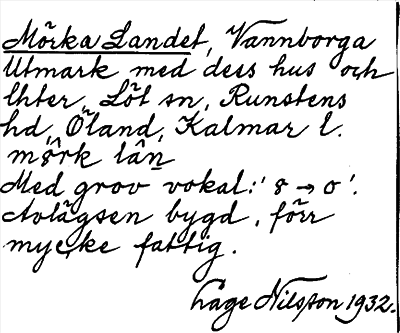 Mörka Landet, Vannborga
Utmark med dess hus och
Löt sn, Runstens
hd, Öland, Kalmar l.
mörk lân
Med grov vokal: '8 → o'.
Avlägsen bygd, förr
mycke fattig.
Åge Nilsson 1932.